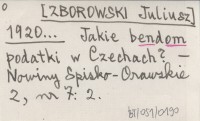 [ZBOROWSKI Juliusz]
1920... Jakie bendom
podatki w Czechach? –
Nowiny Spisko-Orawskie
2, nr 7: 2.